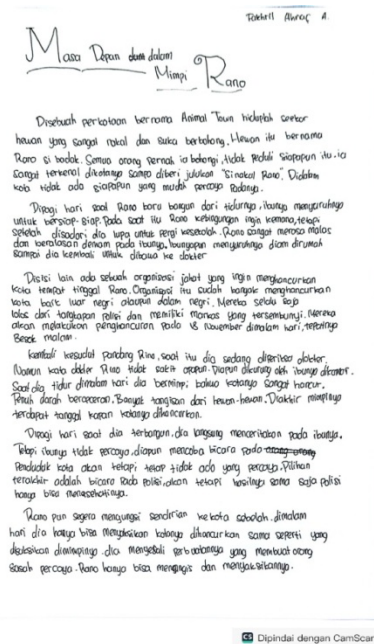 Fakhril Akroç A.
Masa Depan dum dalam
Mimpi Rano
Disebuah perkotaan bernama Animal Town hiduplah seekor
hewan yang sangat nakal dan suka berbohong. Hewan itu bernama
Rano si badak. Semua orang pernah ia bohongi, tidak peduli siapapun itu. ia
sangat terkenal dikotanya sampe diberi julukan "Sinakal Rano". Didalam
kota tidak ada siapapun yang mudah percaya Padanya.
Dipagi hari saat Rano baru bangun dari tidurnya, ibunya menyuruhnya
untuk bersiap-siap. Pada saat itu Rano kebingungan ingin kemana, tetapi
setelah disadari dia lupa untuk pergi kesekolah. Rano sangat merasa malas
dan beralasan demam pada ibunya, ibunyapun menyuruhnya diam dirumah
sampai dia kembali untuk dibawa ke dokter
Disisi lain ada sebuah organisasi jahat yang ingin menghancurkan
kota tempat tinggal Rano. Organisasi itu sudah banyak menghancurkan
kota baik luar negri ataupun dalam negri. Mereka selalu saja
lolos dari tangkapan polisi dan memiliki markas yang tersembunyi. Mereka
akan melakukan penghancuran Pada 18 November dimalam hari, tepatnya
Besok malam.
Kembali kesudut pandang Rino, saat itu dia sedang diperiksa dokter.
Namun kata dokter Rino tidak sakit apapun. Diapun dikurung oleh ibunya dikamar.
Saat dia tidur dimalam hari dia bermimpi bahwa kotanya sangat hancur,
Penuh darah berceceran. Banyak tangisan dari hewan-hewan. Diakhir mimpinya
terdapat tanggal kapan kotanya dihancurkan.
Dipagi hari saat dia terbangun, dia langsung menceritakan pada ibunya.
Tetapi ibunya tidak percaya, diapun mencoba bicara pada orang-orang
Penduduk kota akan tetapi tetap tidak ada yang percaya. Pilihan
terakhir adalah bicara Pada polisi, akan tetapi hasilnya sama saja Polisi
hanya bisa menasehatinya.
Rano pun segera mengungsi sendirian ke kota sebelah. dimalam
hari dia hanya bisa menyaksikan kotanya dihancurkan sama seperti yang
disaksikan dimimpinya. dia menyesali perbuatannya yang membuat orang
susah percaya. Rano hanya bisa menangis dan menyaksikannya.
CS Dipindai dengan CamScan